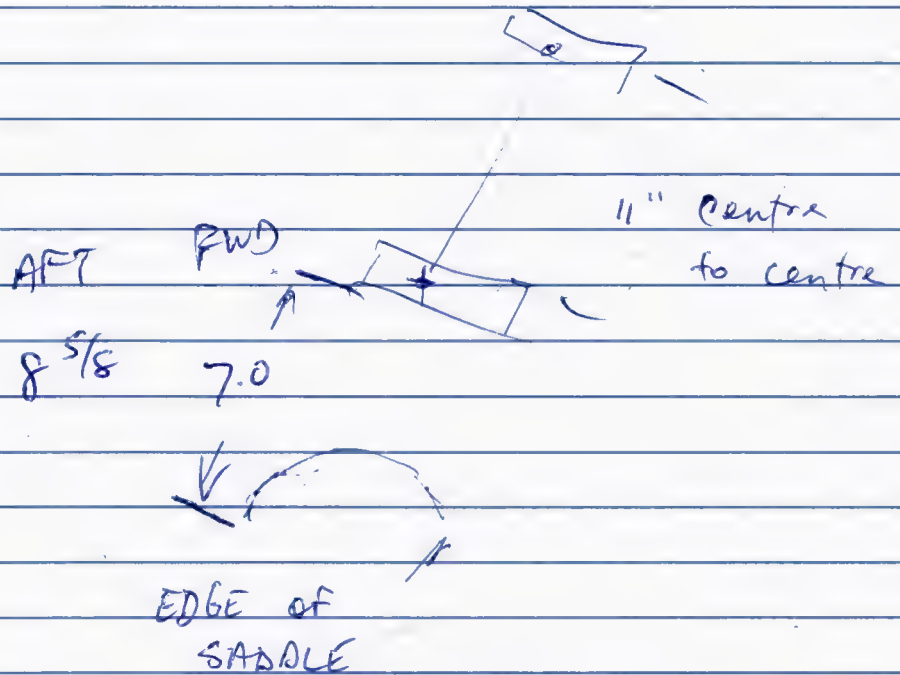 11" Centre
to centre
AFT FWD
8 5/8 7.0
EDGE OF
SADDLE